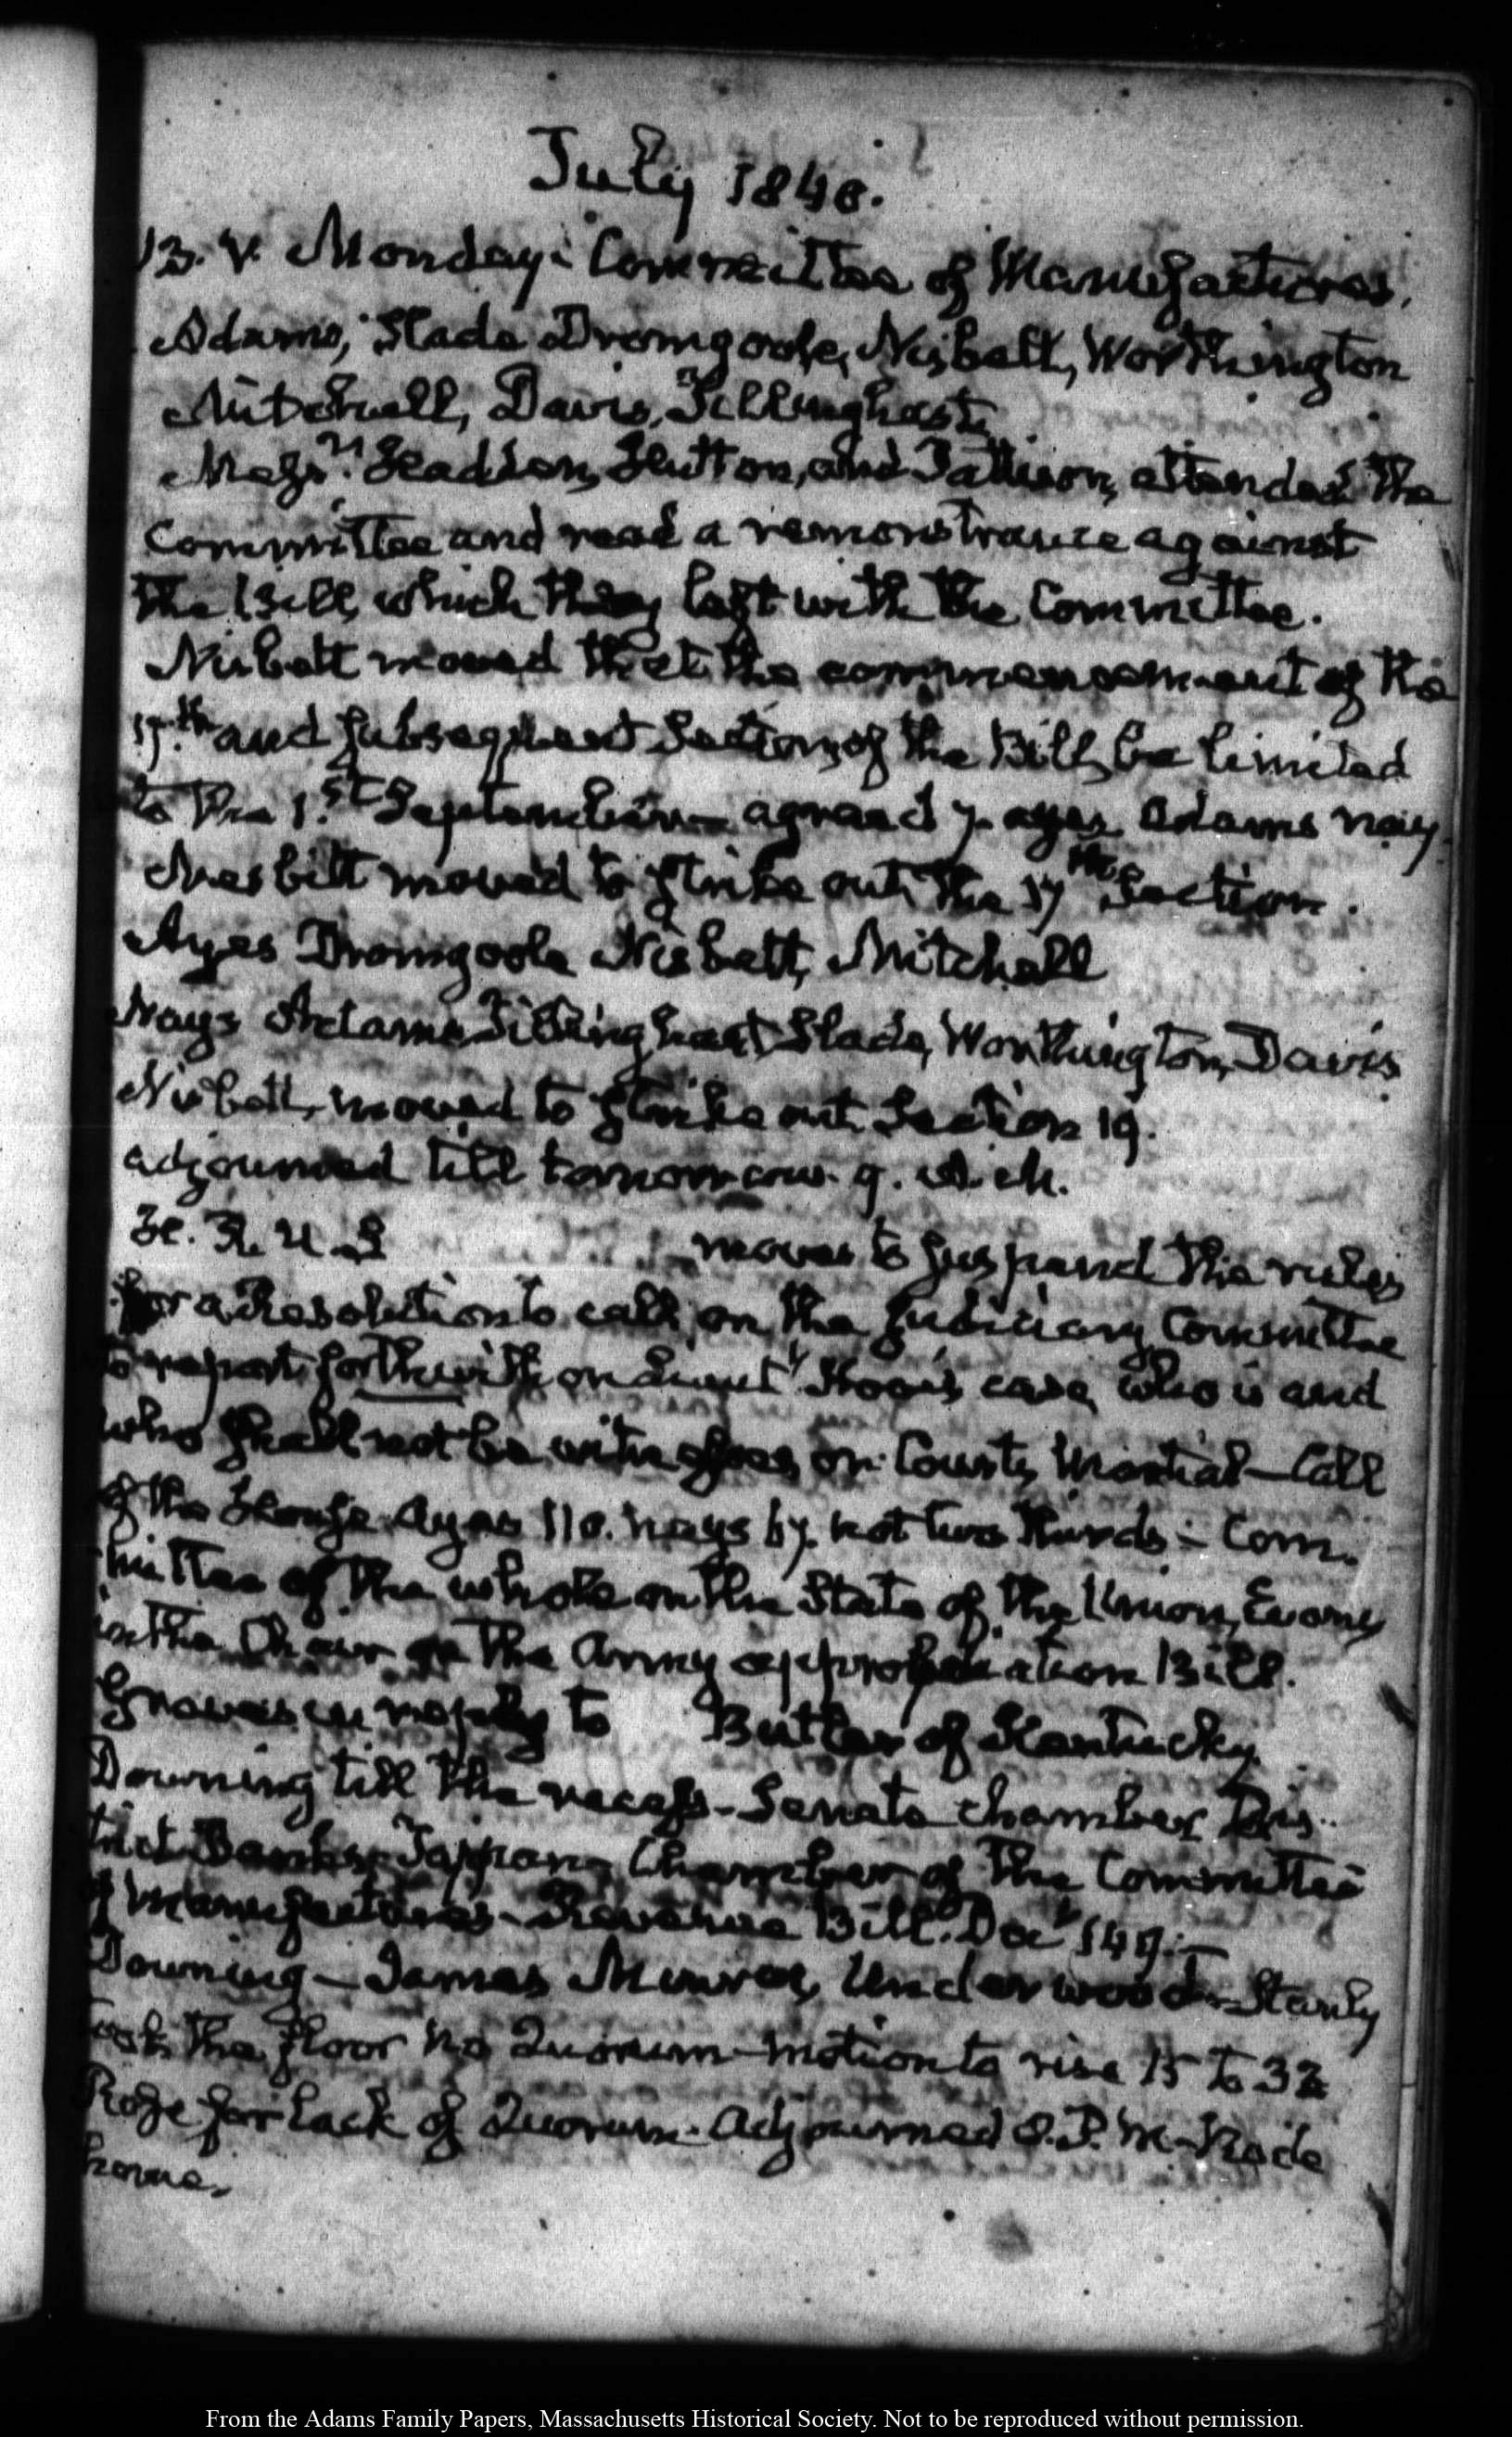 July 1840.
13. V. Monday. Committee of Manufactures.
Adams, Slade Dromgoole, Nisbett, Worthington
Mitchell, Davis, Tillinghast
Messrs. Haddon, Hutton, and Pattison, attended the
Committee and read a remonstrance against
the Bill, which they left with the Committee.
Nisbett moved that the commencement of the
17th and subsequent Sections of the Bill, be limited
to the 1.st September – agreed 7. ayes Adams nay.
Nesbitt moved to strike out the 17th Section.
Ayes Dromgoole Nisbett, Mitchell
Nays Adams, Tillinghast, Slade, Worthington, Davis
Nisbett, moved to strike out Section 19.
adjourned till tomorrow. 9.
H. R. U. S moves to suspend the rules
for a Resolution to call on the Judiciary Committee
to report forthwith on Lieutt Hooe's case, who is and
who shall not be witnesses, on Courts Martial – Call
of the House. Ayes 110. Nays 67. not two thirds – Com-
mittee of the whole on the State of the Union,
in the Chair on the Army appropriation Bill.
Graves in reply to Butler of Kentucky.
Downing till the recess – Senate chamber Dis-
trict Banks, Tappan, Chamber of the Committee
of Manufactures – Revenue Bill. Doct
Downing – James Monroe, Underwood – Stanly
took the floor No Quorum – motion to rise 15 to 32
Rose for lack of Quorum. Adjourned 8. P. M. – Rode
home.
From the Adams Family Papers, Massachusetts Historical Society. Not to be reproduced without permission.